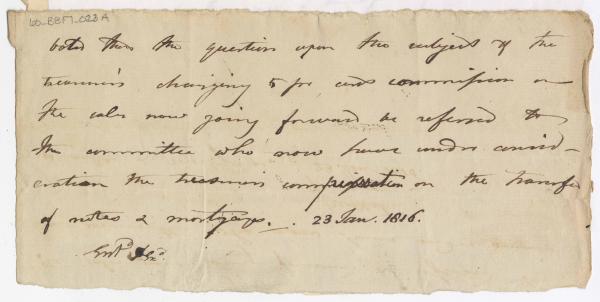 60_BBF1_023A
voted that the question upon the subject of the
treasurer's charging 5 pr cent commission on
the sales now going forward be referred to
the committee who now have under consid-
eration the treasurers compensation on the transfer
of notes & mortgages. . 23 Jan. 1816.